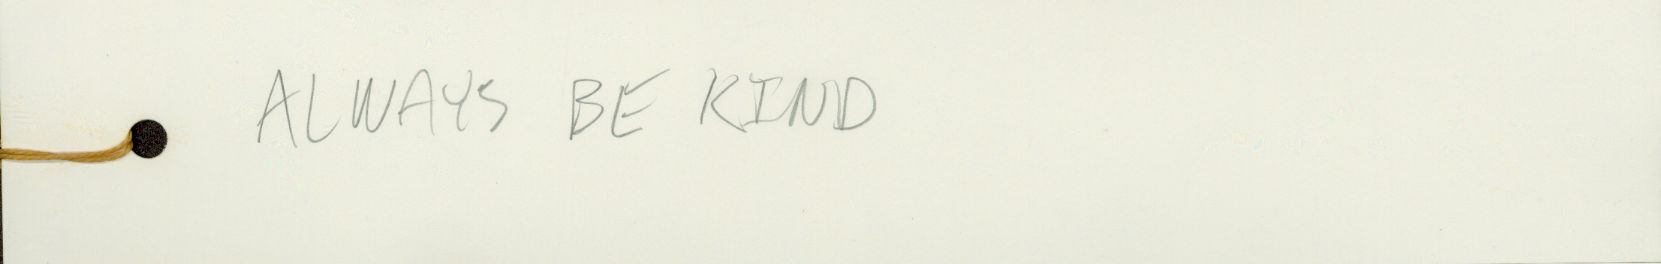 ALWAYS BE KIND